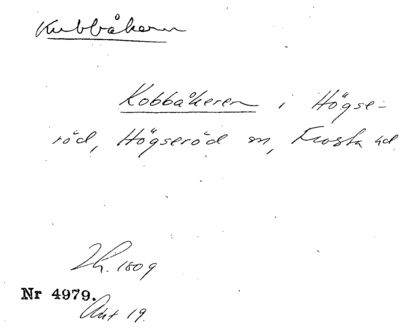 Kubbåkern
Kobbåkeren i Högse-
röd, Högseröd sn, Frosta hd.
Lh. 1809
Nr 4979.
Akt 19.